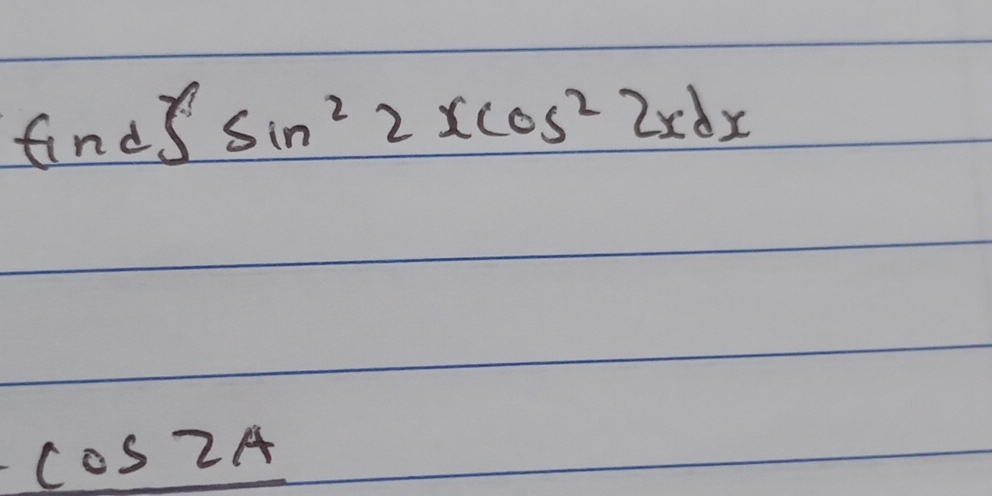 find ∫ sin² 2xcos² 2xdx
- cos 2A